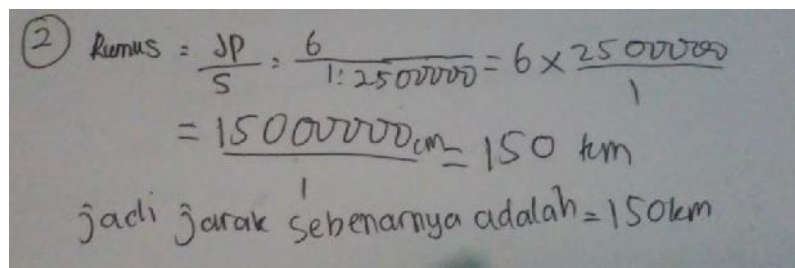 ② Rumus = JP/S = 6/1:2500000 = 6 × 2500000/1
= 15000000cm/1 = 150 km
jadi jarak sebenarnya adalah = 150km